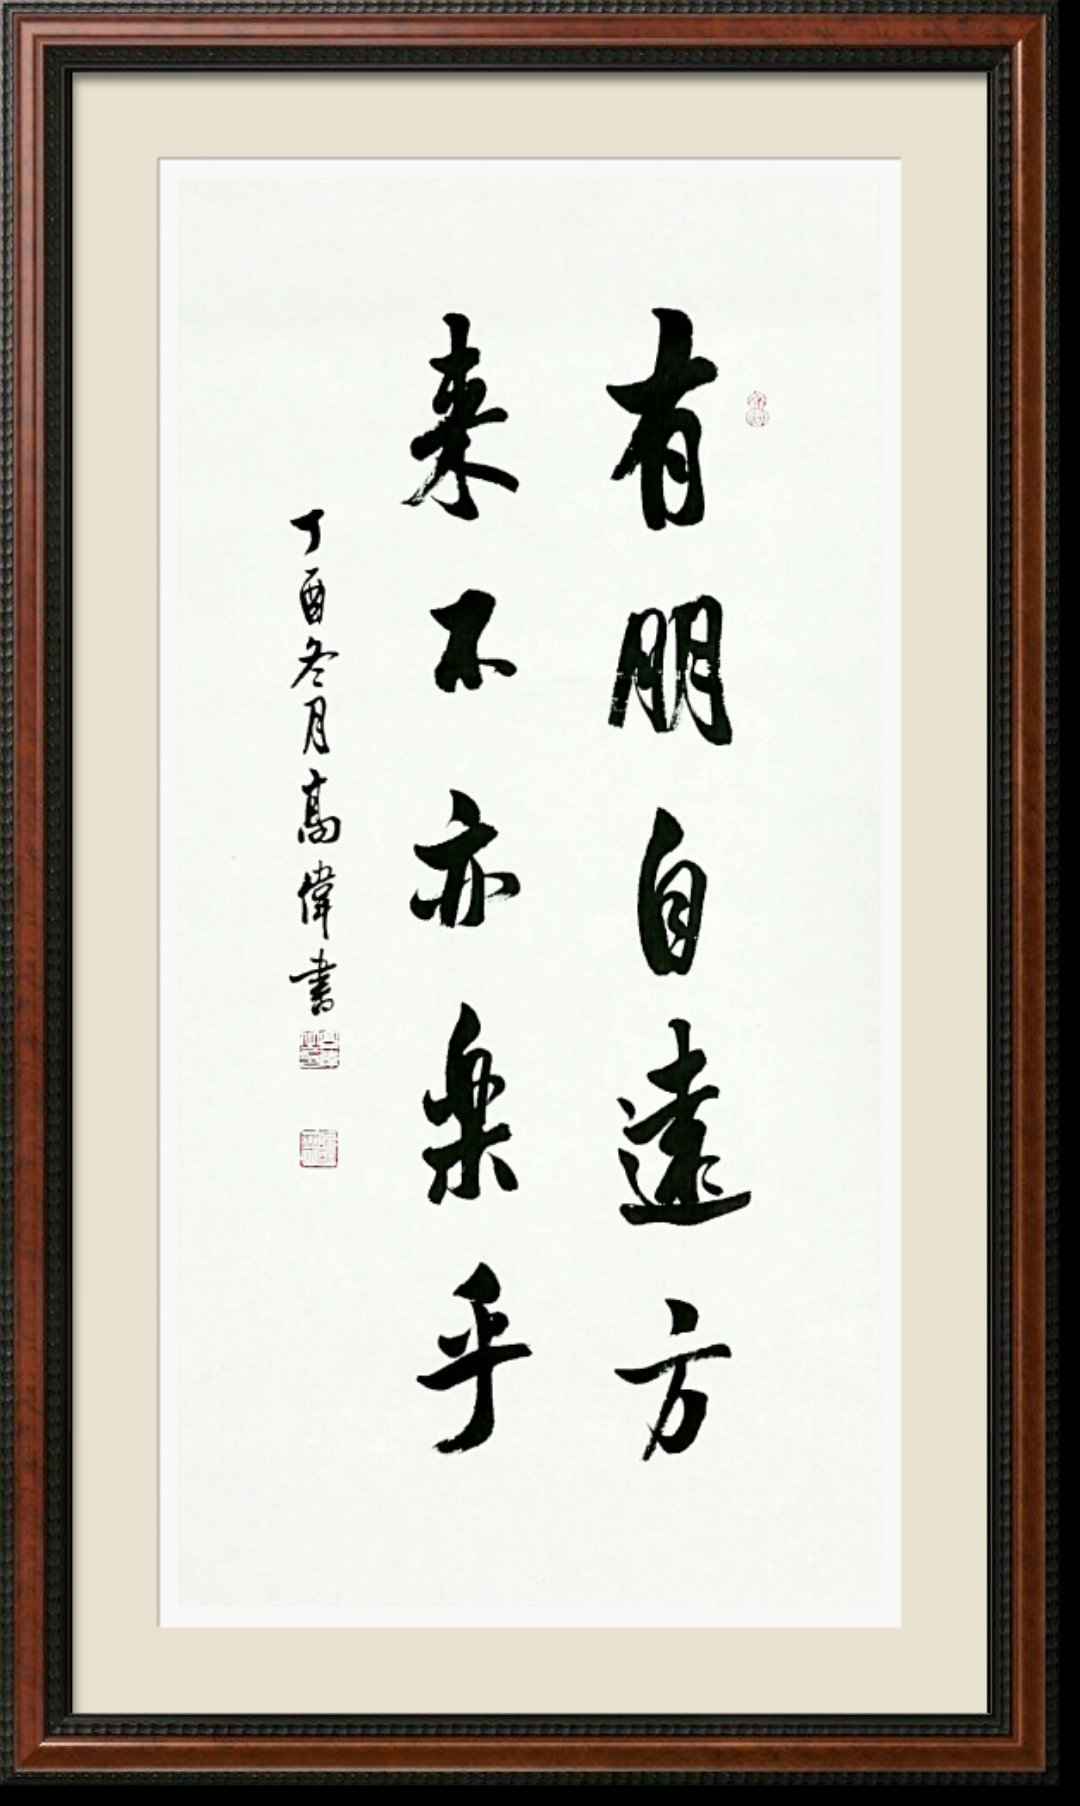 有朋自遠方
来不亦楽乎
丁酉冬月高偉書